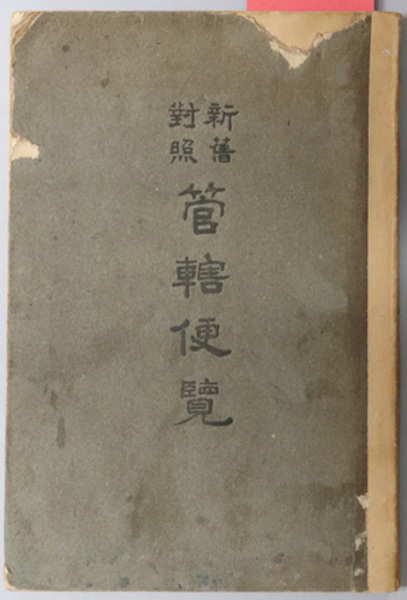 新舊
對照
管轄便覽